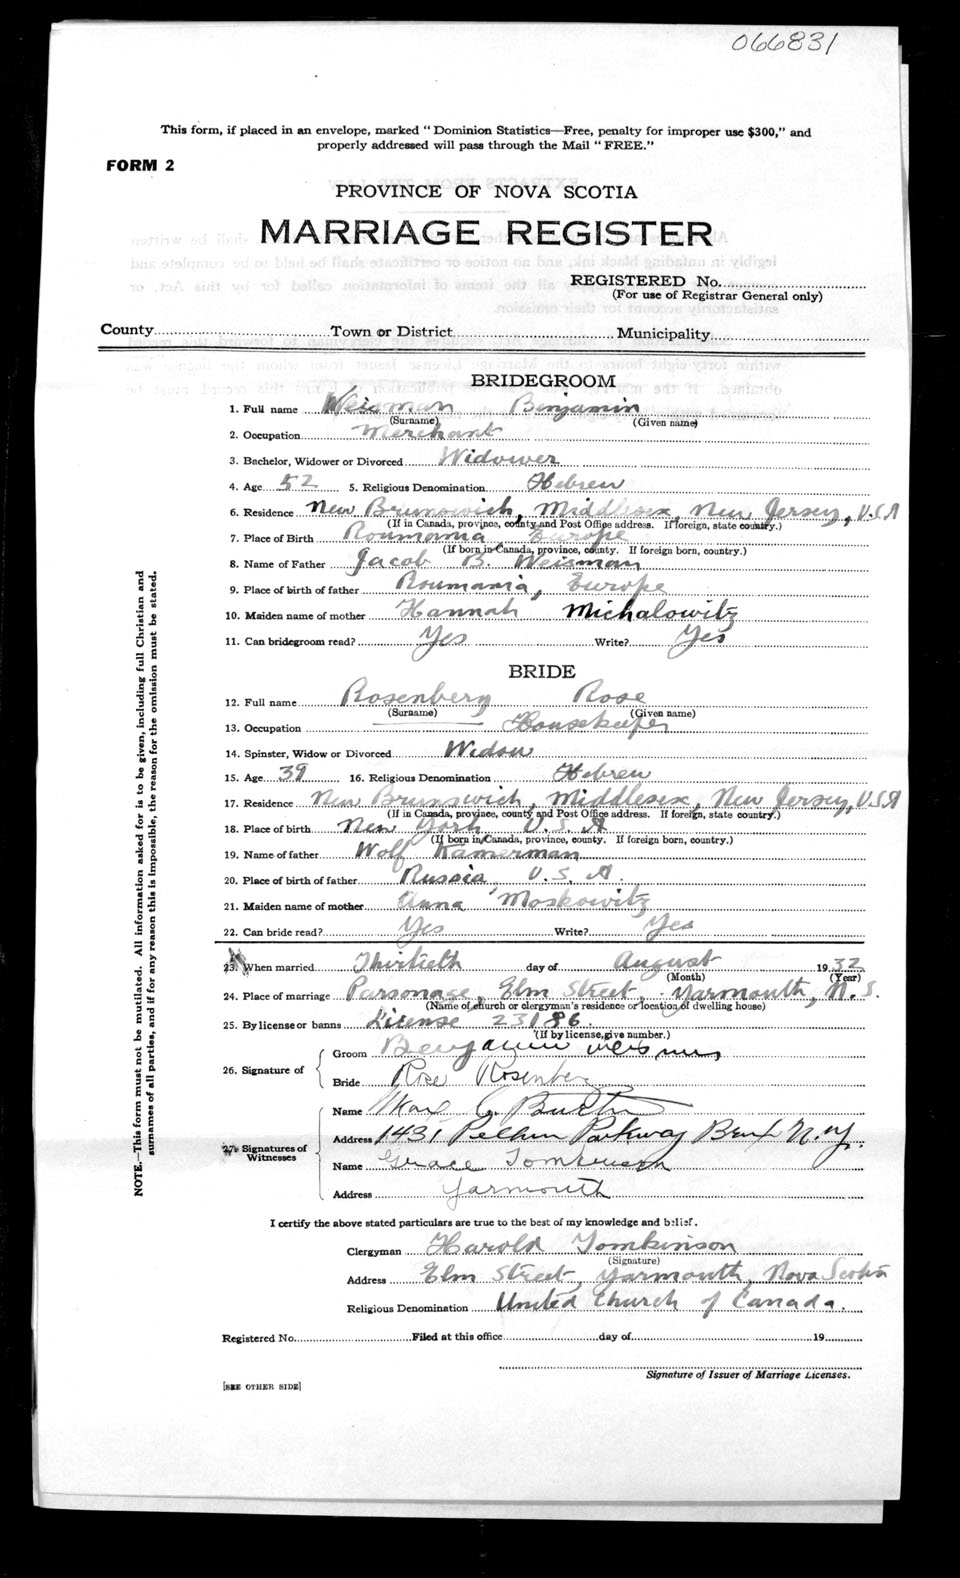 066831
This form, if placed in an envelope, marked " Dominion Statistics—Free, penalty for improper use $300," and
properly addressed will pass through the Mail " FREE."
FORM 2
PROVINCE OF NOVA SCOTIA
MARRIAGE REGISTER
REGISTERED No.
(For use of Registrar General only)
County Town or District Municipality
BRIDEGROOM
1. Full name Weisman Benjamin
(Surname) (Given name)
2. Occupation Merchant
3. Bachelor, Widower or Divorced Widower
4. Age 52 5. Religious Denomination Hebrew
6. Residence New Brunswich, Middlesex, New Jersey, U.S.A
(If in Canada, province, county and Post Office address. If foreign, state country.)
7. Place of Birth Roumania Europe
(If born in Canada, province, county. If foreign born, country.)
8. Name of Father Jacob B. Weisman
9. Place of birth of father Roumania, Europe
10. Maiden name of mother Hannah Michalowitz
11. Can bridegroom read? Yes Write? Yes
BRIDE
12. Full name Rosenberg Rose
(Surname) (Given name)
13. Occupation Housekeeper
14. Spinster, Widow or Divorced Widow
15. Age 39 16. Religious Denomination Hebrew
17. Residence New Brunswich, Middlesex, New Jersey, U.S.A
(If in Canada, province, county and Post Office address. If foreign, state country.)
18. Place of birth New York U.S.A
(If born in Canada, province, county. If foreign born, country.)
19. Name of father Wolf Kamerman
20. Place of birth of father Russia U.S.A.
21. Maiden name of mother Anna Moskowitz
22. Can bride read? Yes Write? Yes
23. When married Thirtieth day of August 1932
(Month) (Year)
24. Place of marriage Parsonage, Elm Street, Yarmouth, N.S.
(Name of church or clergyman's residence or location of dwelling house)
25. By license or banns License 23186.
(If by license, give number.)
26. Signature of Groom Benjamin Weisman
Bride Rose Rosenberg
27. Signatures of Witnesses
Name Max
Address 1431 Pelham Parkway N.Y.
Name Grace Tomkinson
Address Yarmouth
I certify the above stated particulars are true to the best of my knowledge and belief.
Clergyman Harold Tomkinson
(Signature)
Address Elm Street, Yarmouth, Nova Scotia
Religious Denomination United Church of Canada.
Registered No. Filed at this office day of 19
Signature of Issuer of Marriage Licenses.
[SEE OTHER SIDE]
NOTE.—This form must not be mutilated. All information asked for is to be given, including full Christian and
surnames of all parties, and if for any reason this is impossible, the reason for the omission must be stated.